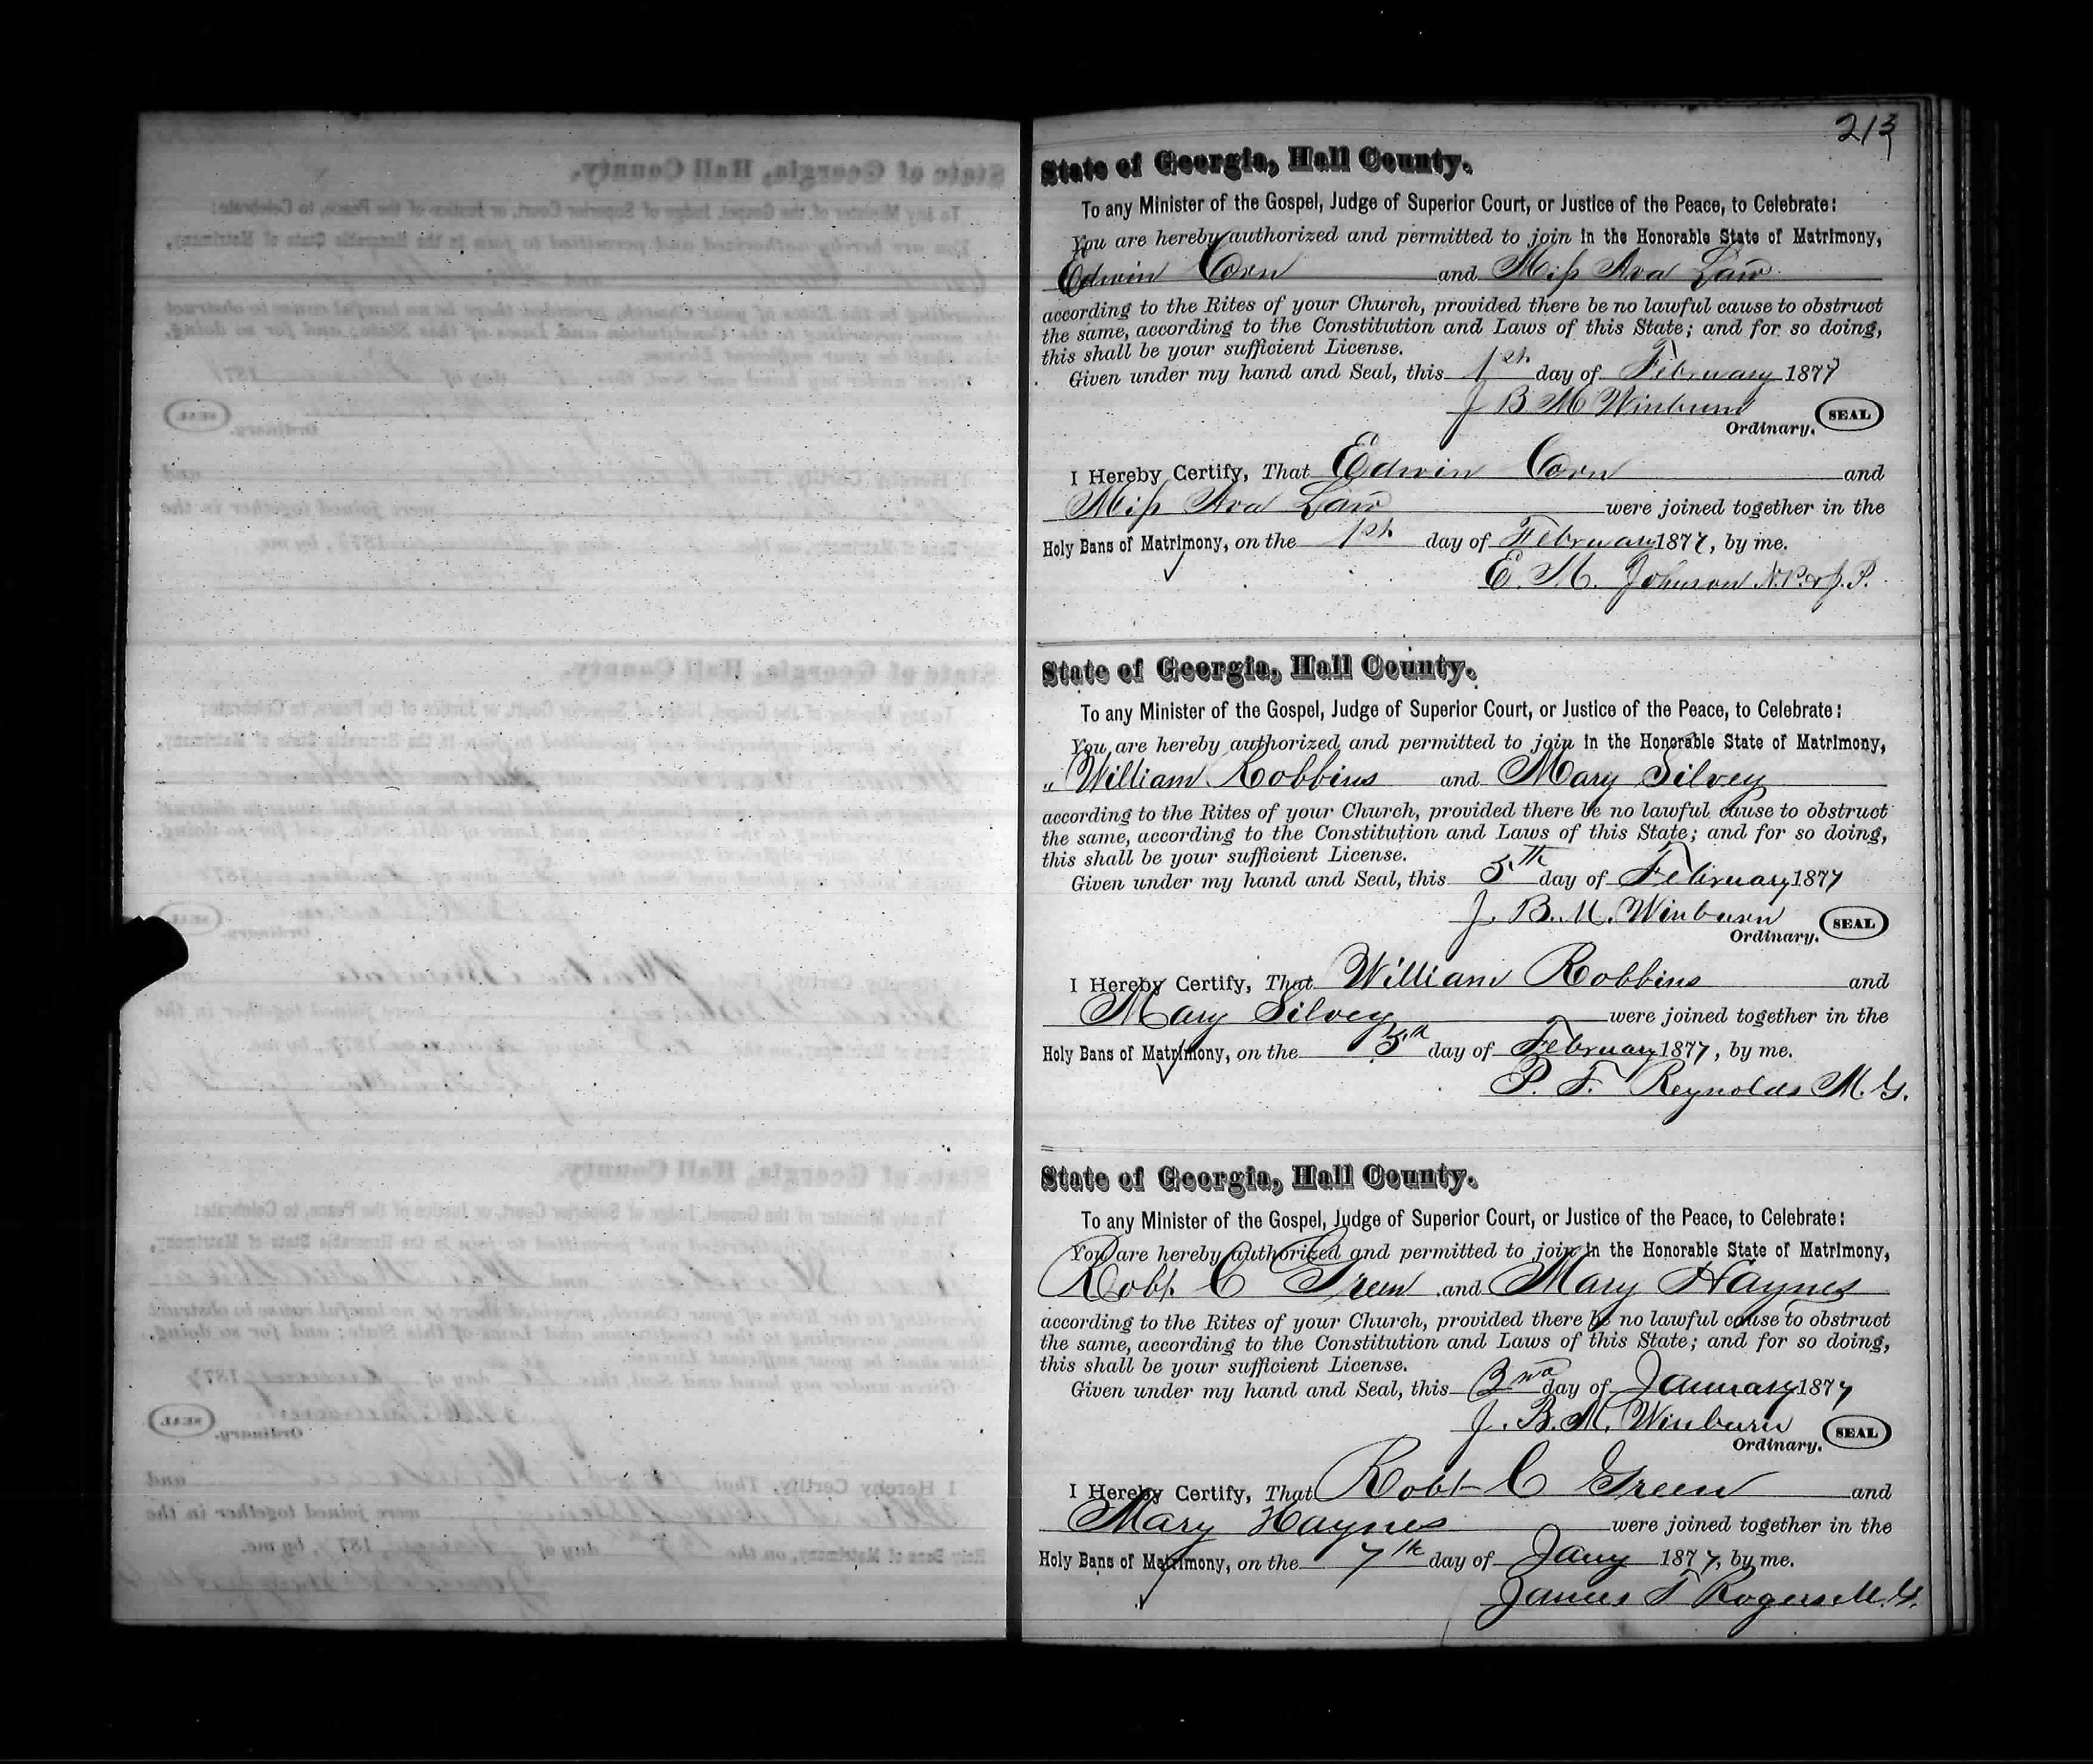 213
State of Georgia, Hall County.
To any Minister of the Gospel, Judge of Superior Court, or Justice of the Peace, to Celebrate:
You are hereby authorized and permitted to join in the Honorable State of Matrimony,
Edwin Corn and Miss Ava Law
according to the Rites of your Church, provided there be no lawful cause to obstruct
the same, according to the Constitution and Laws of this State; and for so doing,
this shall be your sufficient License.
Given under my hand and Seal, this 1st day of February 1877
J B M Winburn SEAL
Ordinary.
I Hereby Certify, That Edwin Corn and
Miss Ava Law were joined together in the
Holy Bans of Matrimony, on the 1st day of February 1877, by me.
E. M. Johnson N.P. & J.P.
State of Georgia, Hall County.
To any Minister of the Gospel, Judge of Superior Court, or Justice of the Peace, to Celebrate:
You are hereby authorized and permitted to join in the Honorable State of Matrimony,
" William Robbins and Mary Silvey
according to the Rites of your Church, provided there be no lawful cause to obstruct
the same, according to the Constitution and Laws of this State; and for so doing,
this shall be your sufficient License.
Given under my hand and Seal, this 5th day of February 1877
J. B. M. Winburn SEAL
Ordinary.
I Hereby Certify, That William Robbins and
Mary Silvey were joined together in the
Holy Bans of Matrimony, on the 5th day of February 1877, by me.
P. F. Reynolds M. G.
State of Georgia, Hall County.
To any Minister of the Gospel, Judge of Superior Court, or Justice of the Peace, to Celebrate:
You are hereby authorized and permitted to join in the Honorable State of Matrimony,
Robt. C Green and Mary Haynes
according to the Rites of your Church, provided there be no lawful cause to obstruct
the same, according to the Constitution and Laws of this State; and for so doing,
this shall be your sufficient License.
Given under my hand and Seal, this day of January 1877
J. B. M. Winburn SEAL
Ordinary.
I Hereby Certify, That Robt C Green and
Mary Haynes were joined together in the
Holy Bans of Matrimony, on the 7th day of Jany 1877, by me.
James T Rogers M. G.